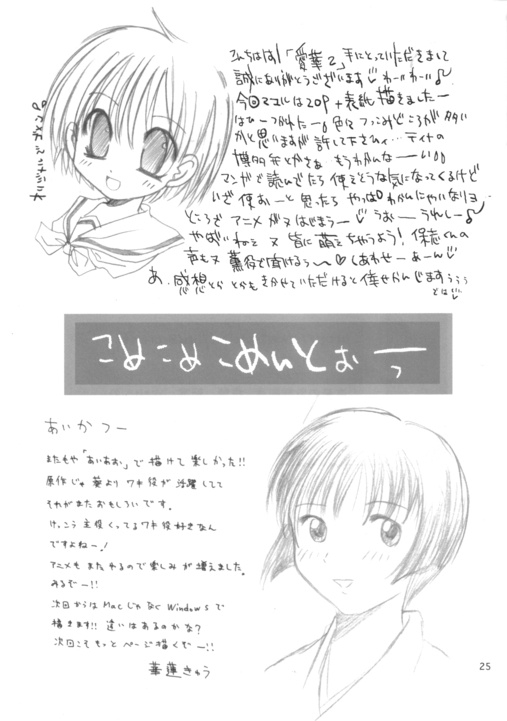 こんちはは!「愛華2」手にとっていただきまして
誠にありがとうございます♡わーいわーい♪
今回マコルは20P+表紙描きましたー
はひーつかれたー。色々つっこみどころが多い
かと思いますが許して下さい…ティナの
博多弁とかさぁ もうわかんなーい!!
マンガで読んでたら使えそうな気になってくるけど
いざ使おーと思ったらやっぱわかんにゃいなりヨ
ところでアニメがヌはじまうー うおーうれしー♪
やばいねェ 又皆に萌えちゃうよう!保志くんの
声も又薫役で聞けるぅ~♡しあわせーあーん♡
あ、感想とかとかもきかせていただけると倖せかんじますぅぅぅ
では
こめこめこめんとぉーっ
あいかつー
またもや「あいあお」で描けて楽しかった!!
原作じゃ葵よりワキ役が活躍してて
それがまたおもしろいです。
けっこう主役くってるワキ役好きなん
ですよねー!
アニメもまたやるので楽しみが増えました。
みるぞー!!
次回からはMacじゃなくWindowsで
描きます!!違いはあるのかな?
次回こそもっとページ描くぞー!!
華蓮きゅう
25